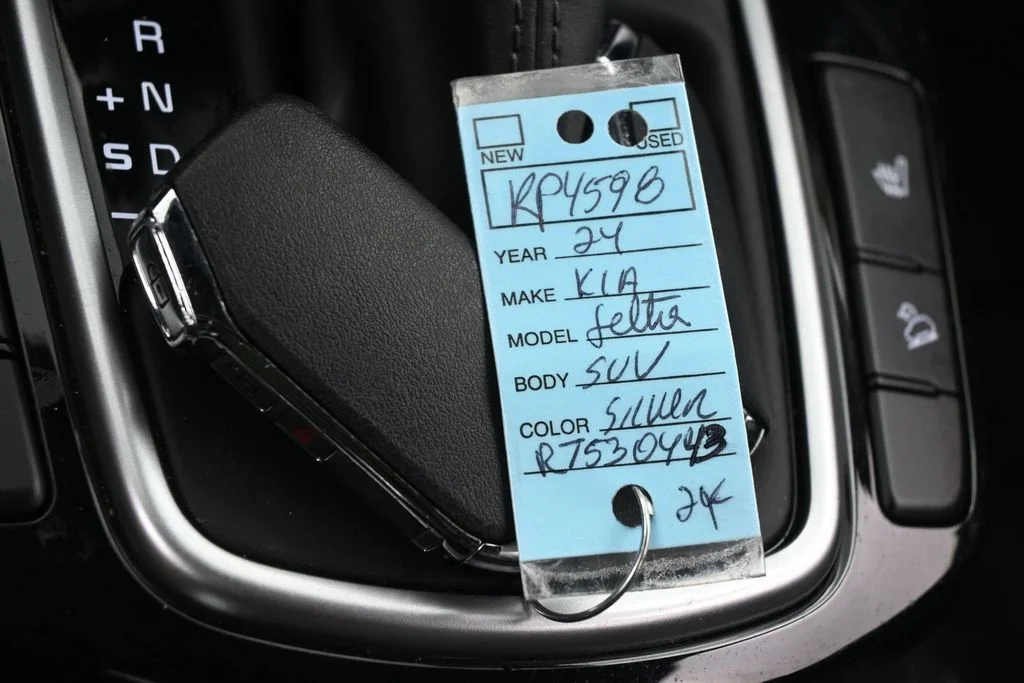 R
+ N
S D
NEW USED
KP4598
YEAR 24
MAKE KIA
MODEL Seltos
BODY SUV
COLOR SILVER
R7530443
24